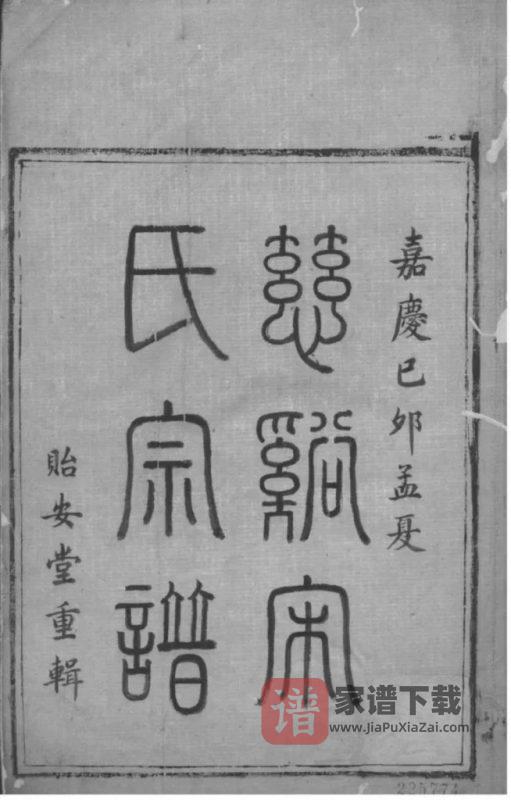 嘉慶已夘孟夏
慈谿宋
氏宗譜
貽安堂重輯
谱 家谱下载
www.JiaPuXiaZai.com
225774